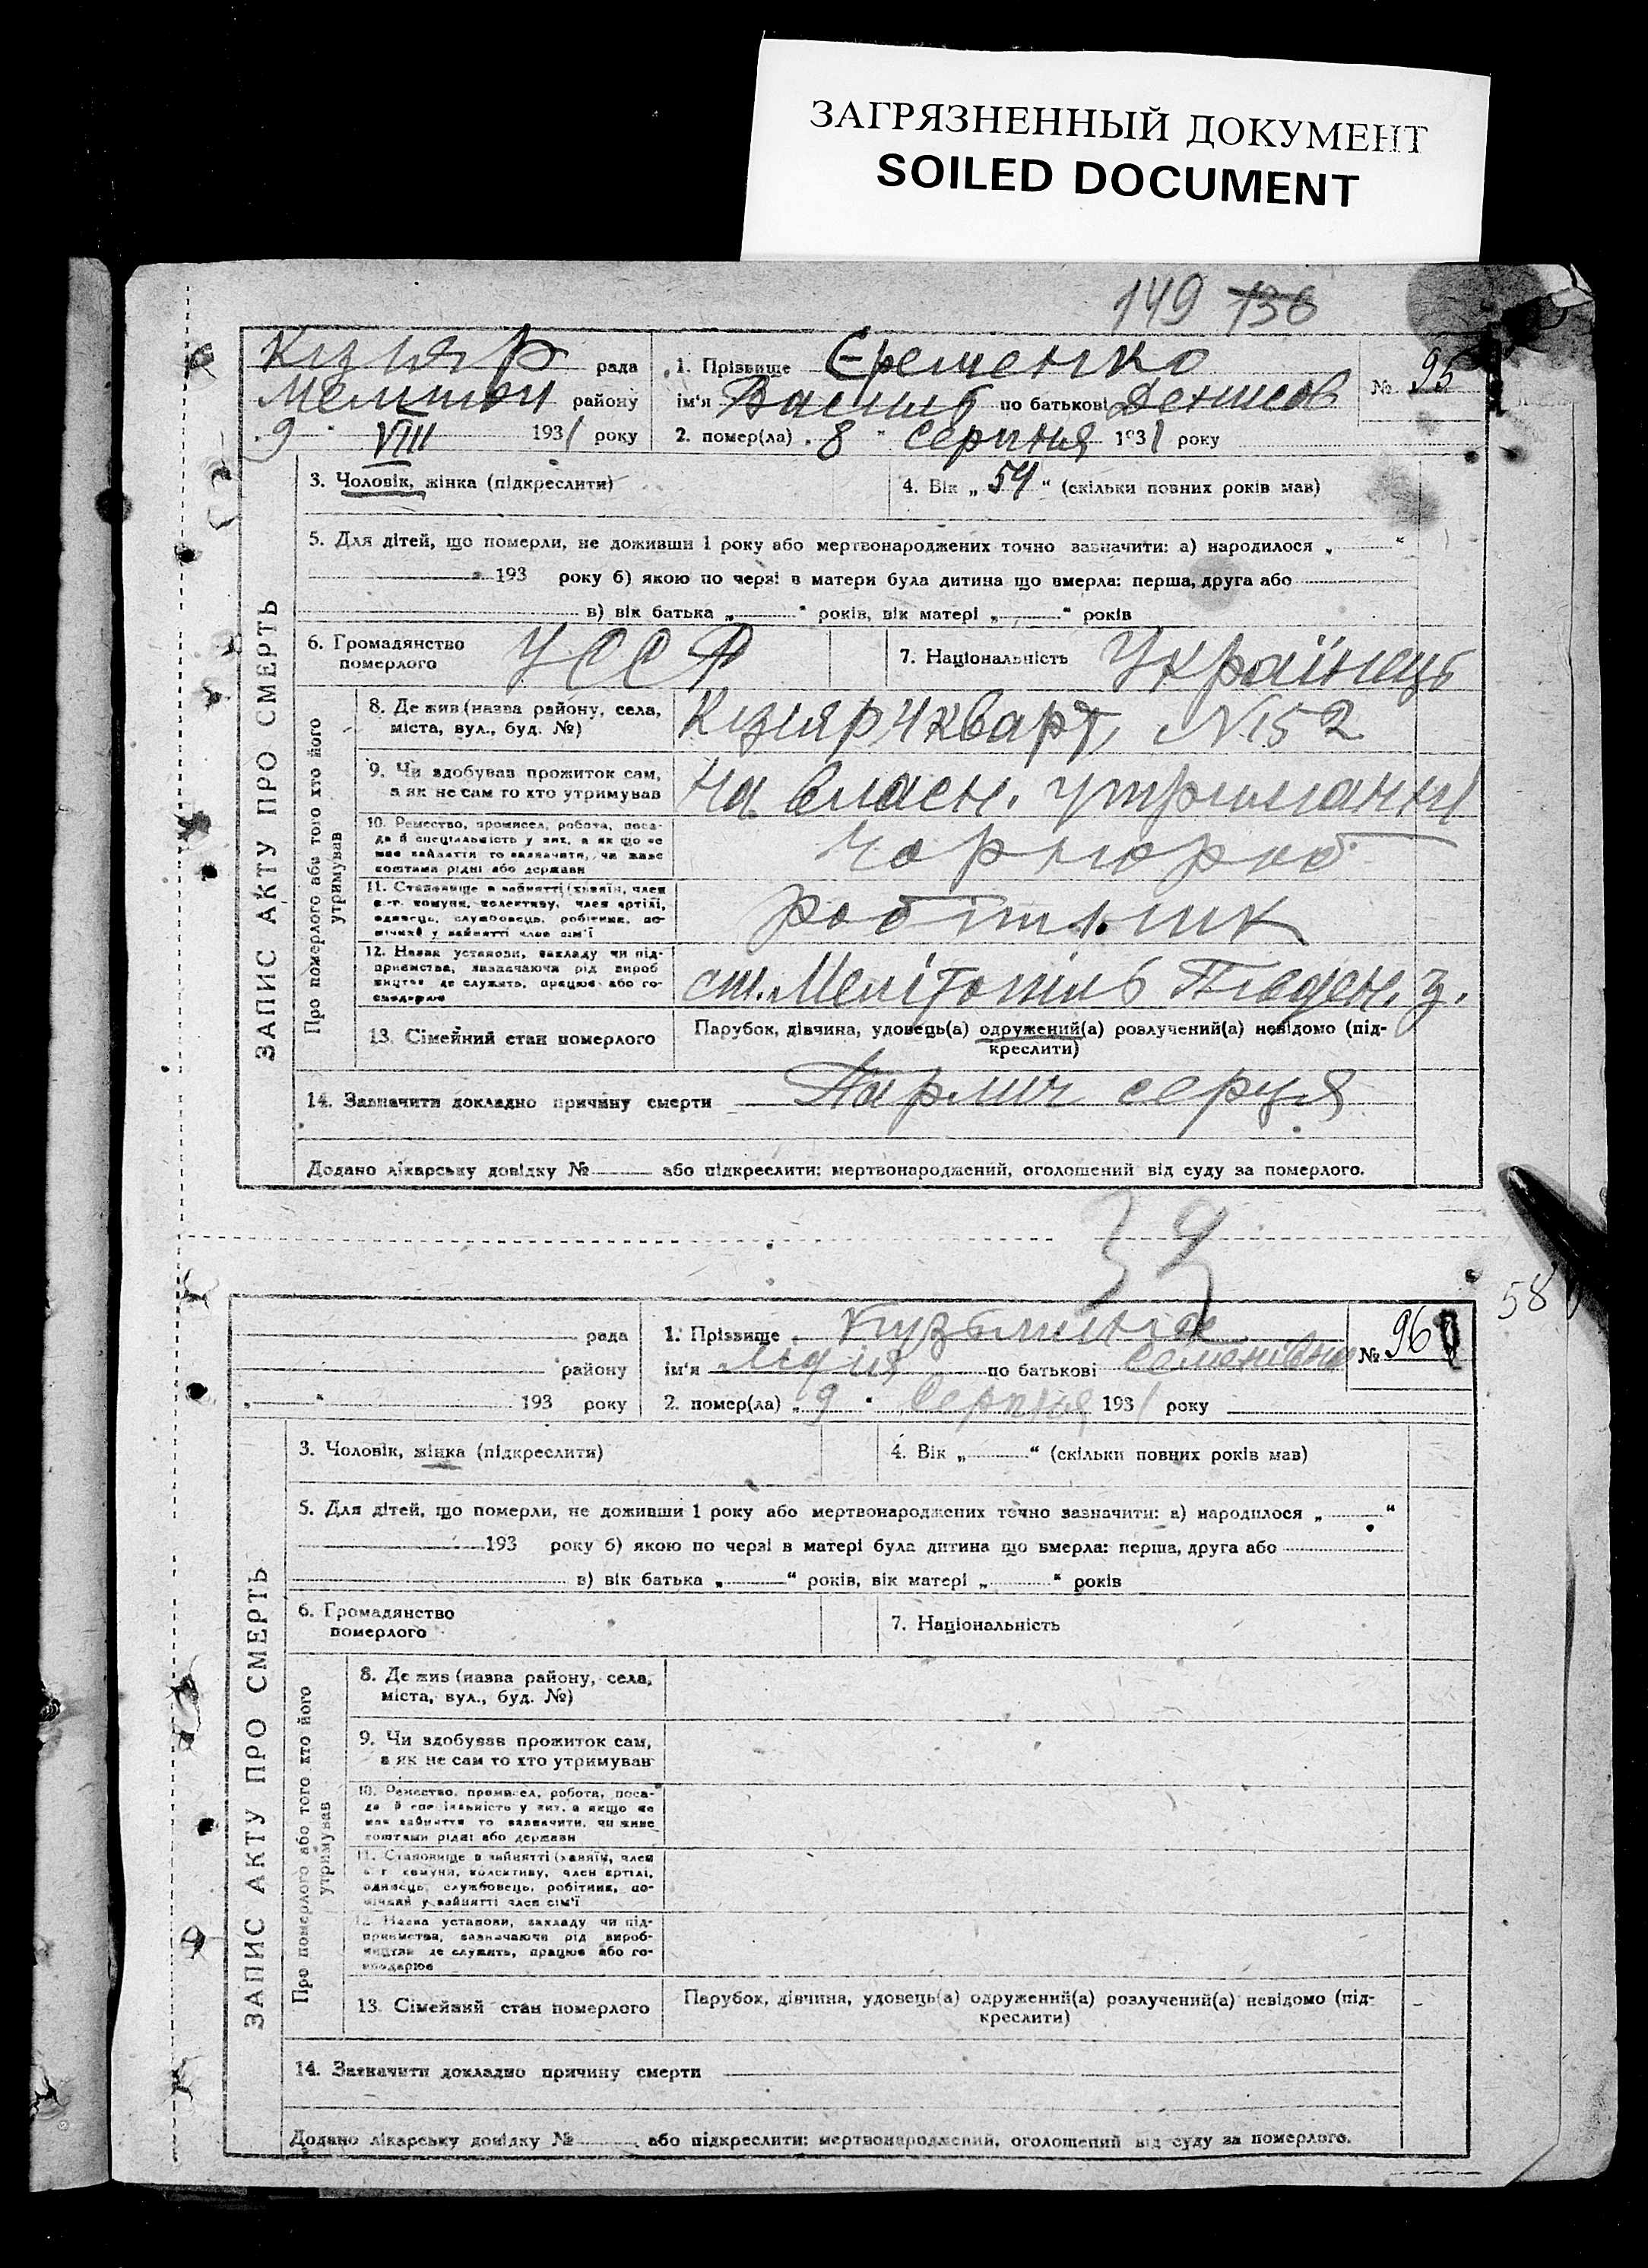 ЗАГРЯЗНЕННЫЙ ДОКУМЕНТ
SOILED DOCUMENT
149 136
Кізіяр рада
Меліт району
"9" VIII 1931 року
1. Прізвище Єременко
ім'я Василь по батькові Денисов
2. помер(ла) "8" серпня 1931 року
№ 95
ЗАПИС АКТУ ПРО СМЕРТЬ
3. Чоловік, жінка (підкреслити)
4. Вік „54“ (скільки повних років мав)
5. Для дітей, що померли, не доживши 1 року або мертвонароджених точно зазначити: а) народилося „ “
193 року б) якою по черзі в матери була дитина що вмерла: перша, друга або
в) вік батька „ “ років, вік матері „ “ років
6. Громадянство
померлого УССР
7. Національність Українець
Про померлого або того хто його
утримував
8. Де жив (назва району, села,
міста, вул., буд. №)
Кізіяр 4 кварт, №152
9. Чи здобував прожиток сам,
а як не сам то хто утримував
На власн. утриманні
10. Ремество, промисел, робота, поса-
да й спеціальність у них, а як що не
має зайняття то зазначити, чи живе
коштами рідні або держави
Чорнороб
11. Становище в зайнятті (хазяїн, член
с.-г. комуни, колективу, член артілі,
одинець, службовець, робітник, по-
мічний у зайнятті член сім'ї
робітник
12. Назва установи, закладу чи під-
приємства, зазначаючи рід вироб
ництва де служить, працює або го-
сподарює
ст. Мелітопіль Півден. з.
13. Сімейний стан померлого
Парубок, дівчина, удовець(а) одружений(а) розлучений(а) невідомо (під-
креслити)
14. Зазначити докладно причину смерти Парлич серця
Додано лікарську довідку № або підкреслити: мертвонароджений, оголошений від суду за померлого.
39
58
рада
району
„ “ 193 року
1. Прізвище Кузьміна
ім'я Лідія по батькові Семенівна
2. помер(ла) „9“ Серпня 1931 року
№ 96
ЗАПИС АКТУ ПРО СМЕРТЬ
3. Чоловік, жінка (підкреслити)
4. Вік „ “ (скільки повних років мав)
5. Для дітей, що померли, не доживши 1 року або мертвонароджених точно зазначити: а) народилося „ “
193 року б) якою по черзі в матері була дитина що вмерла: перша, друга або
в) вік батька „ “ років, вік матері „ “ років
6. Громадянство
померлого
7. Національність
Про померлого або того хто його
утримував
8. Де жив (назва району, села,
міста, вул., буд. №)
9. Чи здобував прожиток сам,
а як не сам то хто утримував
10. Ремество, промисел, робота, поса-
да й спеціальність у них, а якщо не
має зайняття то зазначити, чи живе
коштами рідні або держави
11. Становище в зайнятті (хазяїн, член
с.-г. комуни, колективу, член артілі,
одинець, службовець, робітник, по-
мічний у зайнятті член сім'ї
12. Назва установи, закладу чи під-
приємства, зазначаючи рід вироб-
ництва де служить, працює або го-
сподарює
13. Сімейний стан померлого
Парубок, дівчина, удовець(а) одружений(а) розлучений(а) невідомо (під-
креслити)
14. Зазначити докладно причину смерти
Додано лікарську довідку № або підкреслити: мертвонароджений, оголошений від суду за померлого.